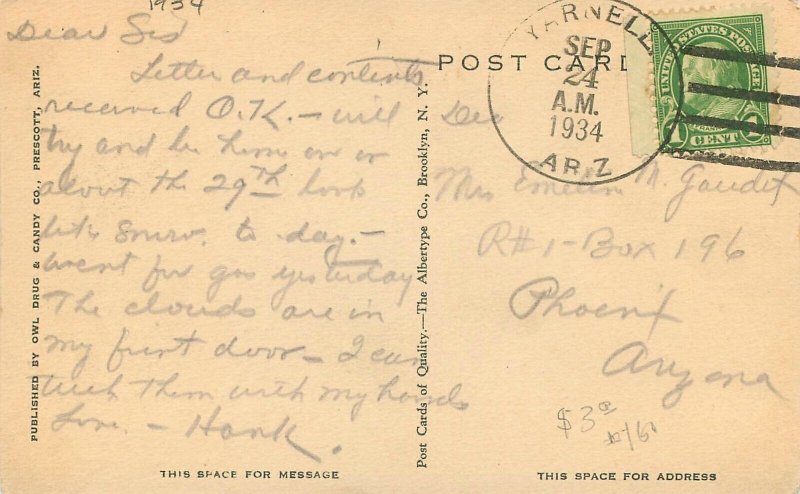 1934
Dear Sis
Letter and contents
received O.K. - will
try and be there on or
about the 29th looks
like snow. to day. -
went for gas yesterday
The clouds are in
my front door - I can
touch them with my hands
Love. - Hank.
THIS SPACE FOR MESSAGE
PUBLISHED BY OWL DRUG & CANDY CO., PRESCOTT, ARIZ.
Post Cards of Quality.—The Albertype Co., Brooklyn, N. Y.
POST CARD
YARNELL,
SEP
24
A.M.
1934
ARIZ
UNITED STATES POSTAGE
1 CENT 1
Mrs M. Gaudet
R#1-Box 196
Phoenix
Aryona
$3
THIS SPACE FOR ADDRESS